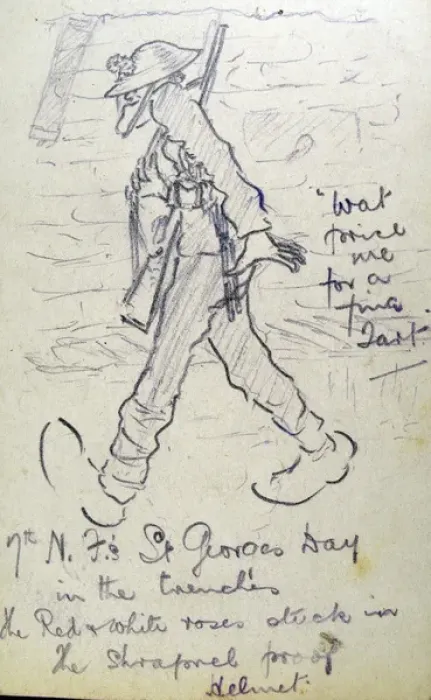 "Wat
price
me
for a
fina
Tart.
7th N. F.'s St Georges Day
in the trenches
The Red & White roses stuck in
The Shrapnel proof
Helmet.